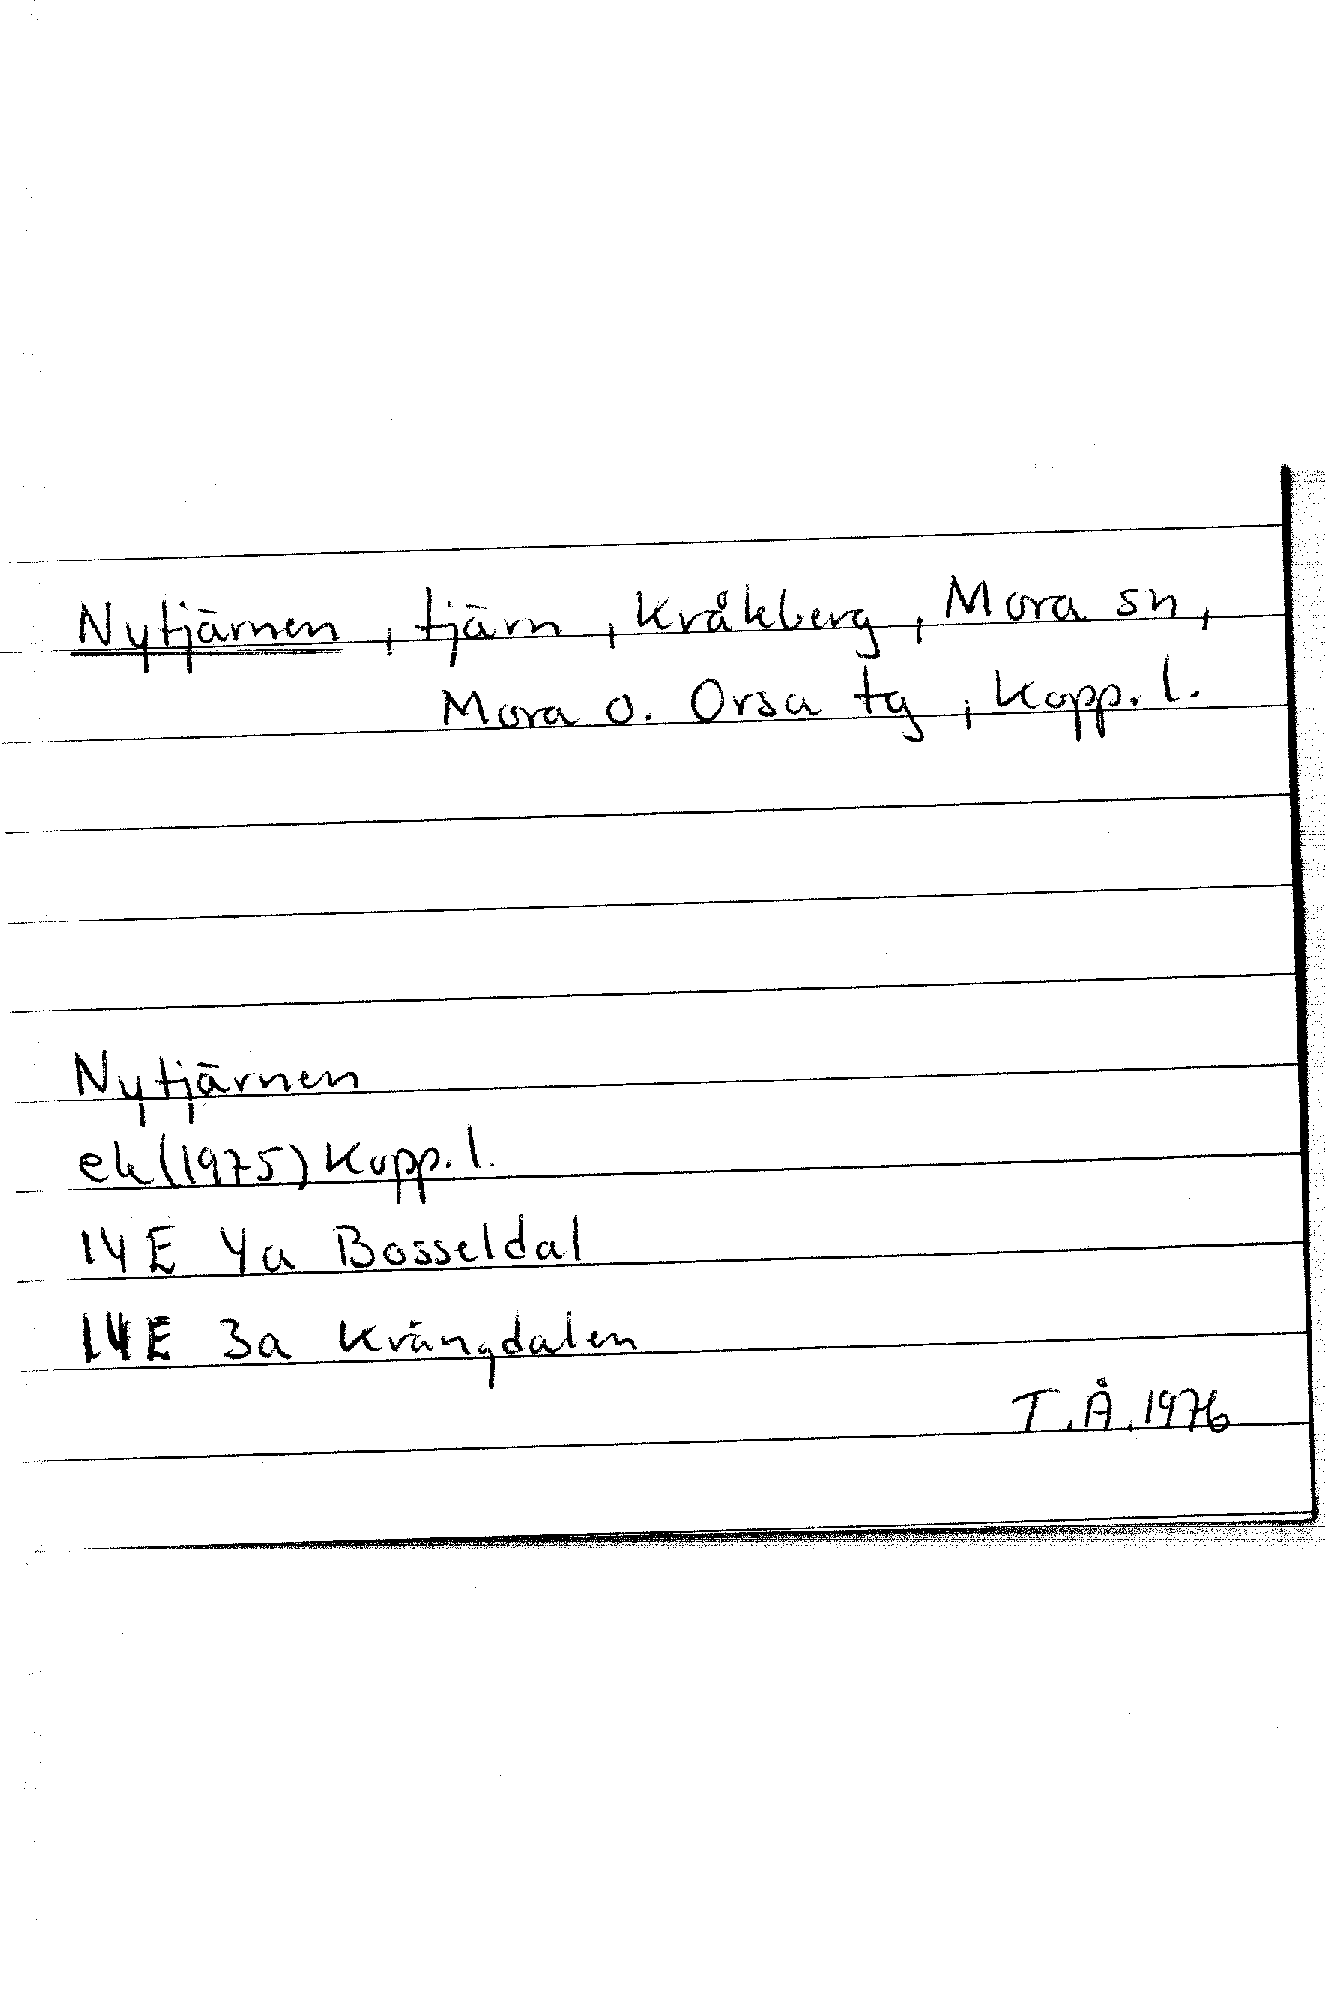 Nytjärnen, tjärn, Kråkberg, Mora sn,
Mora o. Orsa tg, Kopp. l.
Nytjärnen
ek (1975) Kopp. l.
14E 4a Bosseldal
14E 3a Krångdalen
T.Å. 1976